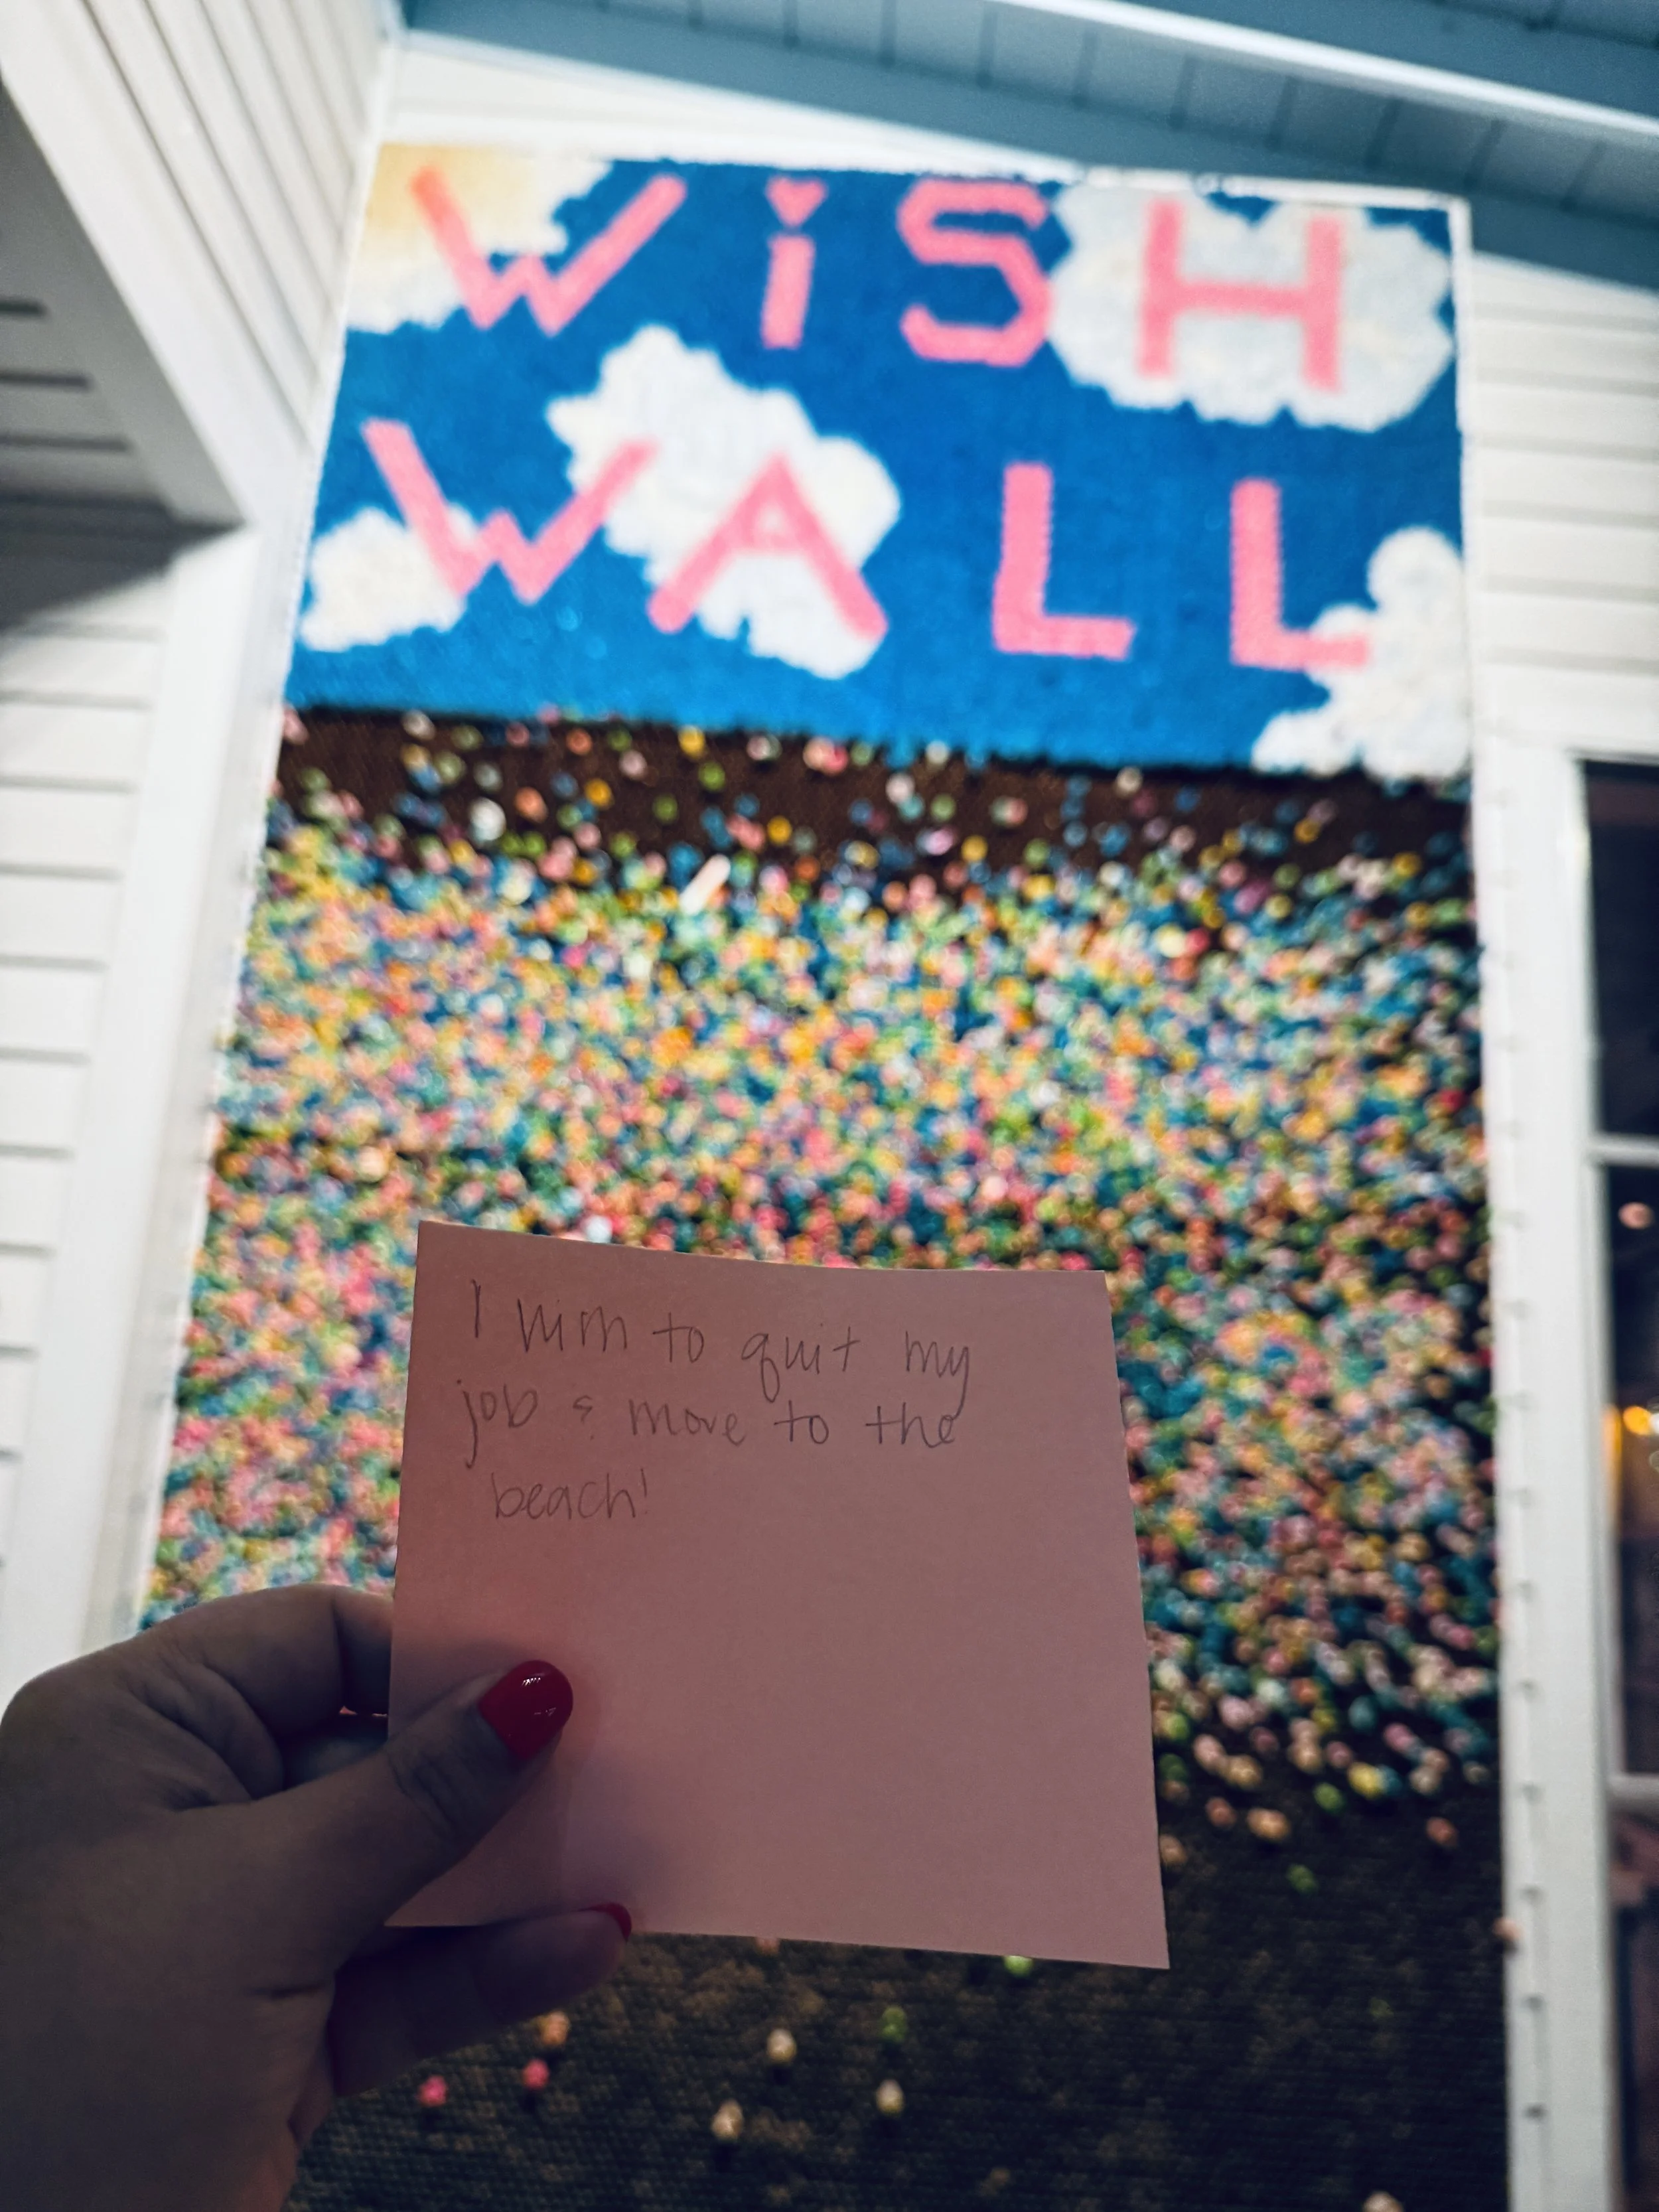 WiSH
WALL
I wish to quit my
job & move to the
beach!